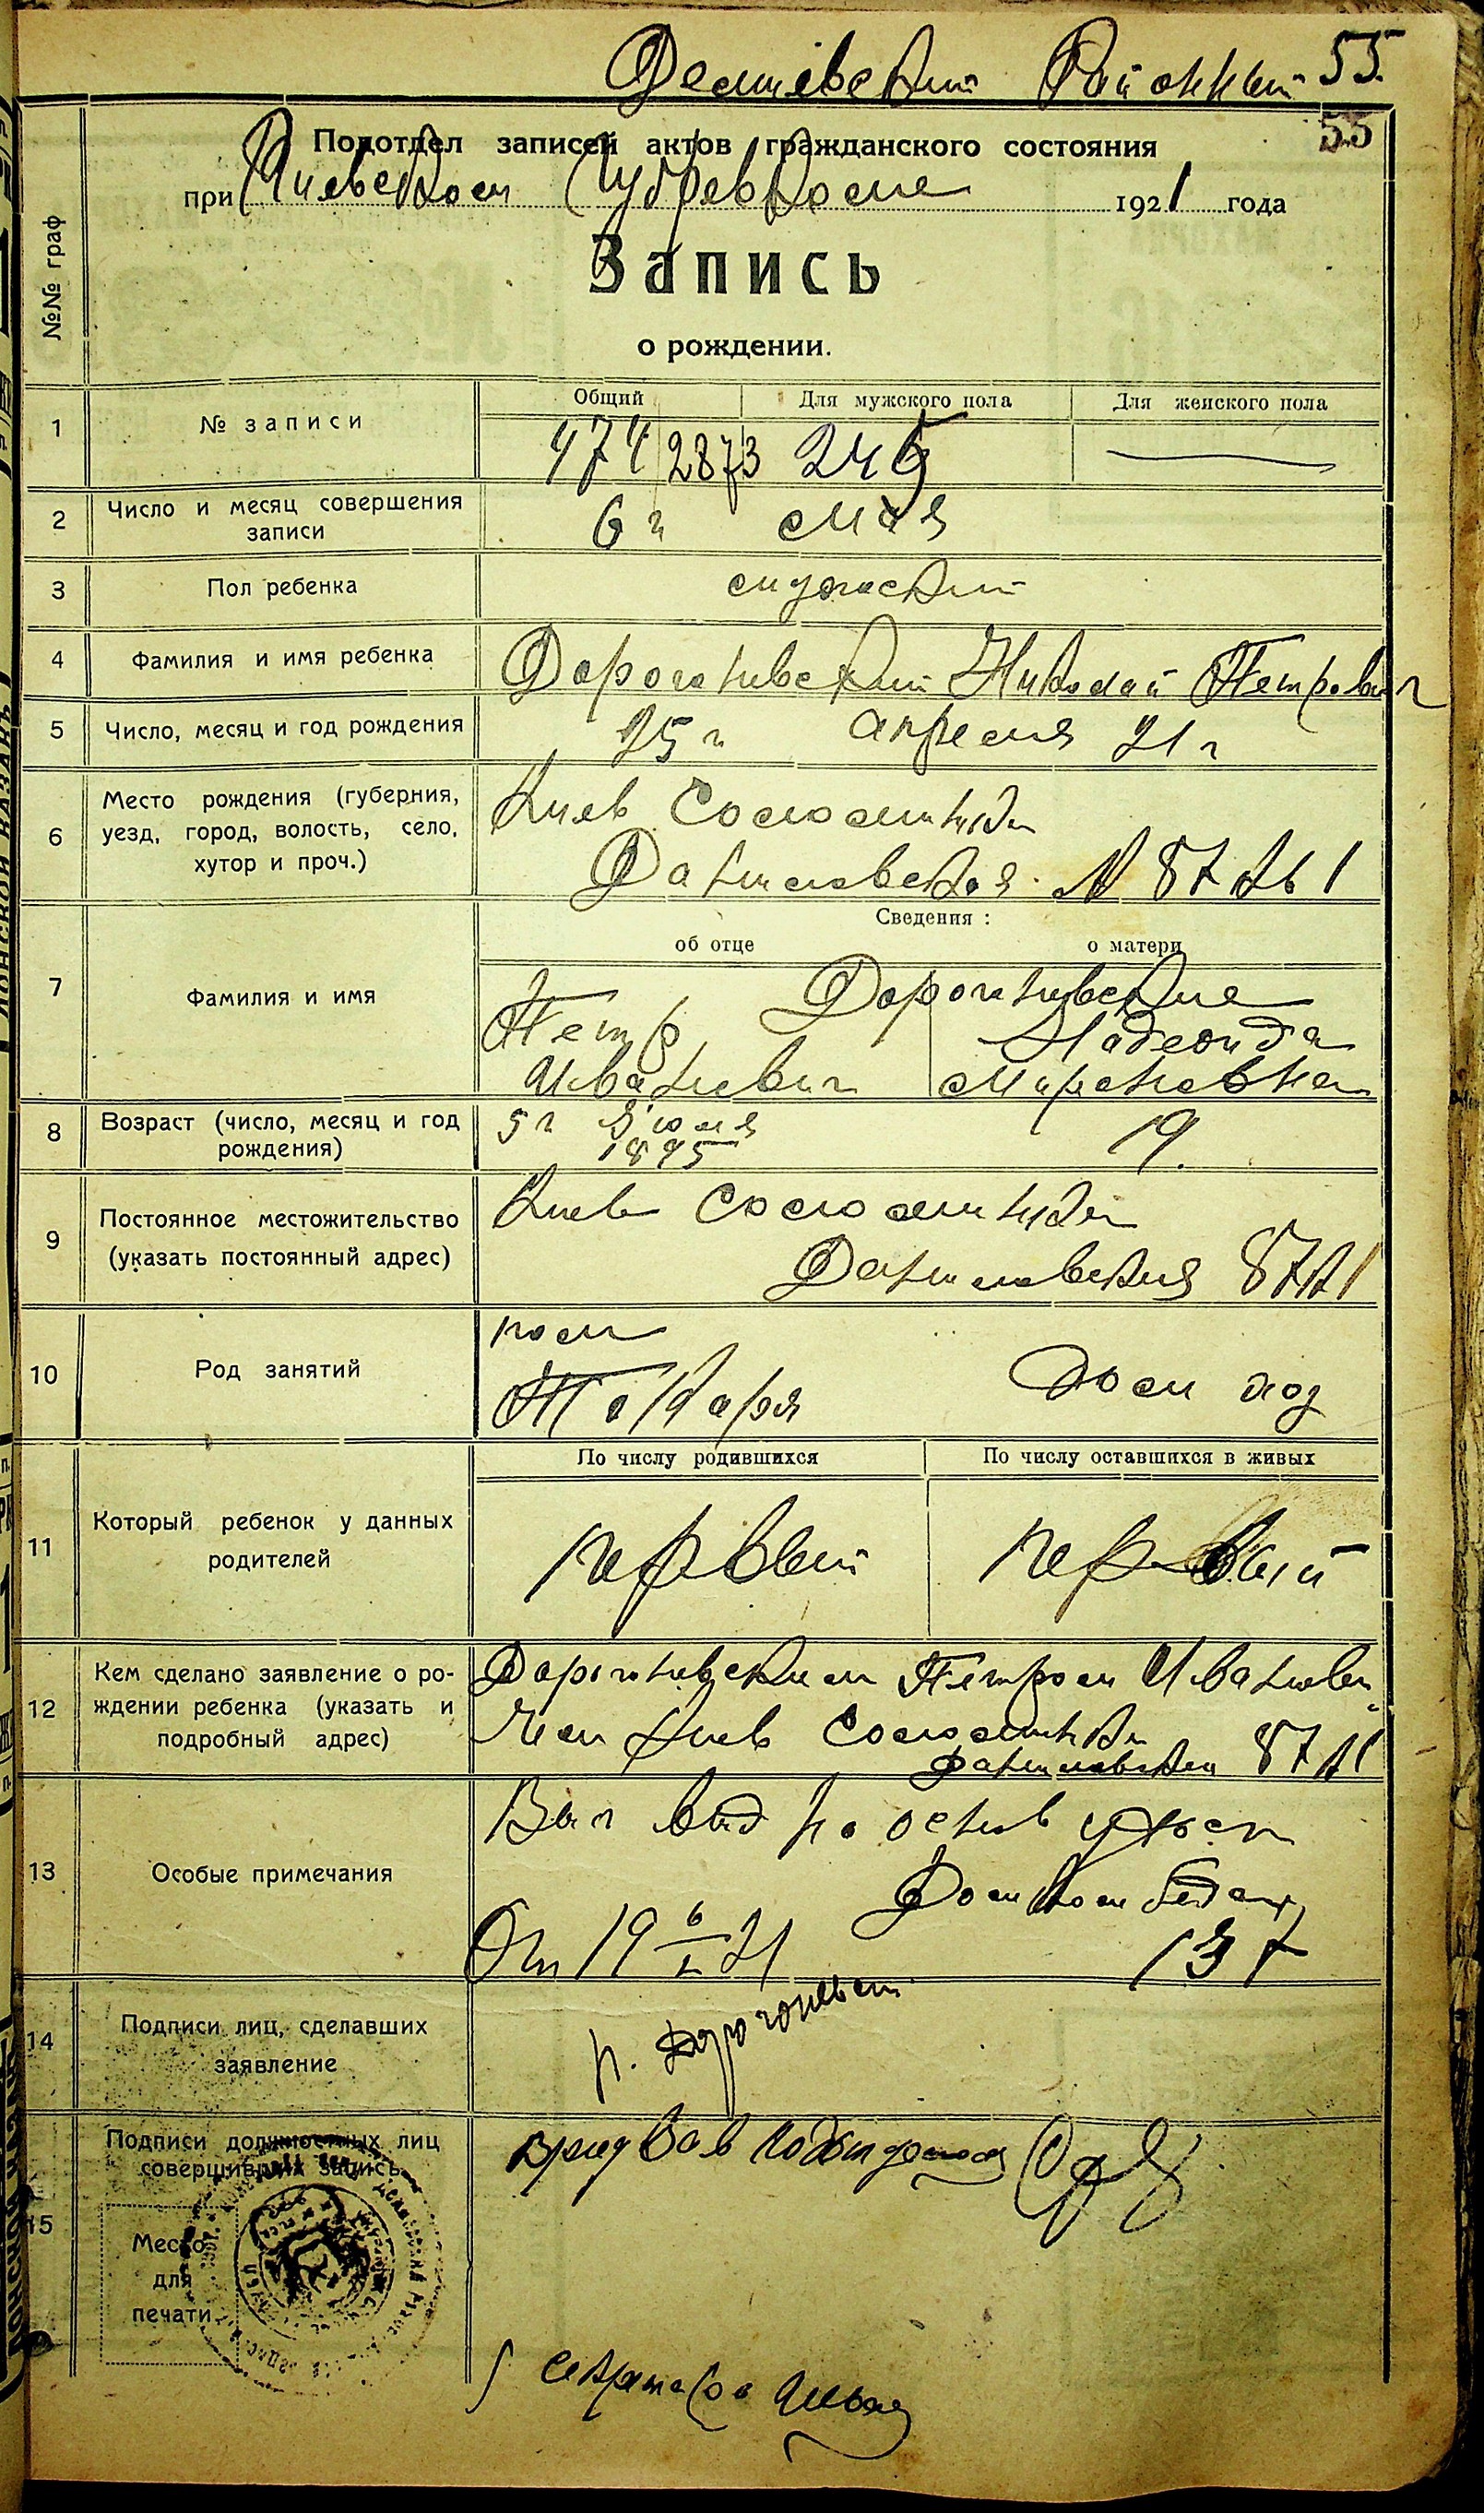 Районный 55.
55
Подотдел записей актов гражданского состояния
при Киевском Губревкоме 1921 года
Запись
о рождении.
№№ граф
Общий Для мужского пола Для женского пола
1 № записи 474 2873 245 —
2 Число и месяц совершения
записи
6 г мая
3 Пол ребенка мужский
4 Фамилия и имя ребенка Дорогинский Николай Петрович
5 Число, месяц и год рождения 25 г апреля 21 г
6 Место рождения (губерния,
уезд, город, волость, село,
хутор и проч.)
Киев Соломинка
Даниловская № 87 кв 1
Сведения:
об отце о матери
7 Фамилия и имя
Дорогинские
Петр Надежда
Иванович Мироновна
8 Возраст (число, месяц и год
рождения)
5 г Июля 19.
1895
9 Постоянное местожительство
(указать постоянный адрес)
Киев Соломинка
Даниловская 87 к 1
10 Род занятий
пом
Токаря Дом хоз
По числу родившихся По числу оставшихся в живых
11 Который ребенок у данных
родителей
первый первый
12 Кем сделано заявление о ро-
ждении ребенка (указать и
подробный адрес)
Дорогинским Петром Иванови
чем Киев Соломинка
Даниловская 87 к 1
13 Особые примечания
вид на основ
Домком
От 19 21 137
14 Подписи лиц, сделавших
заявление
15 Подписи должностных лиц
совершивших запись
Место
для
печати